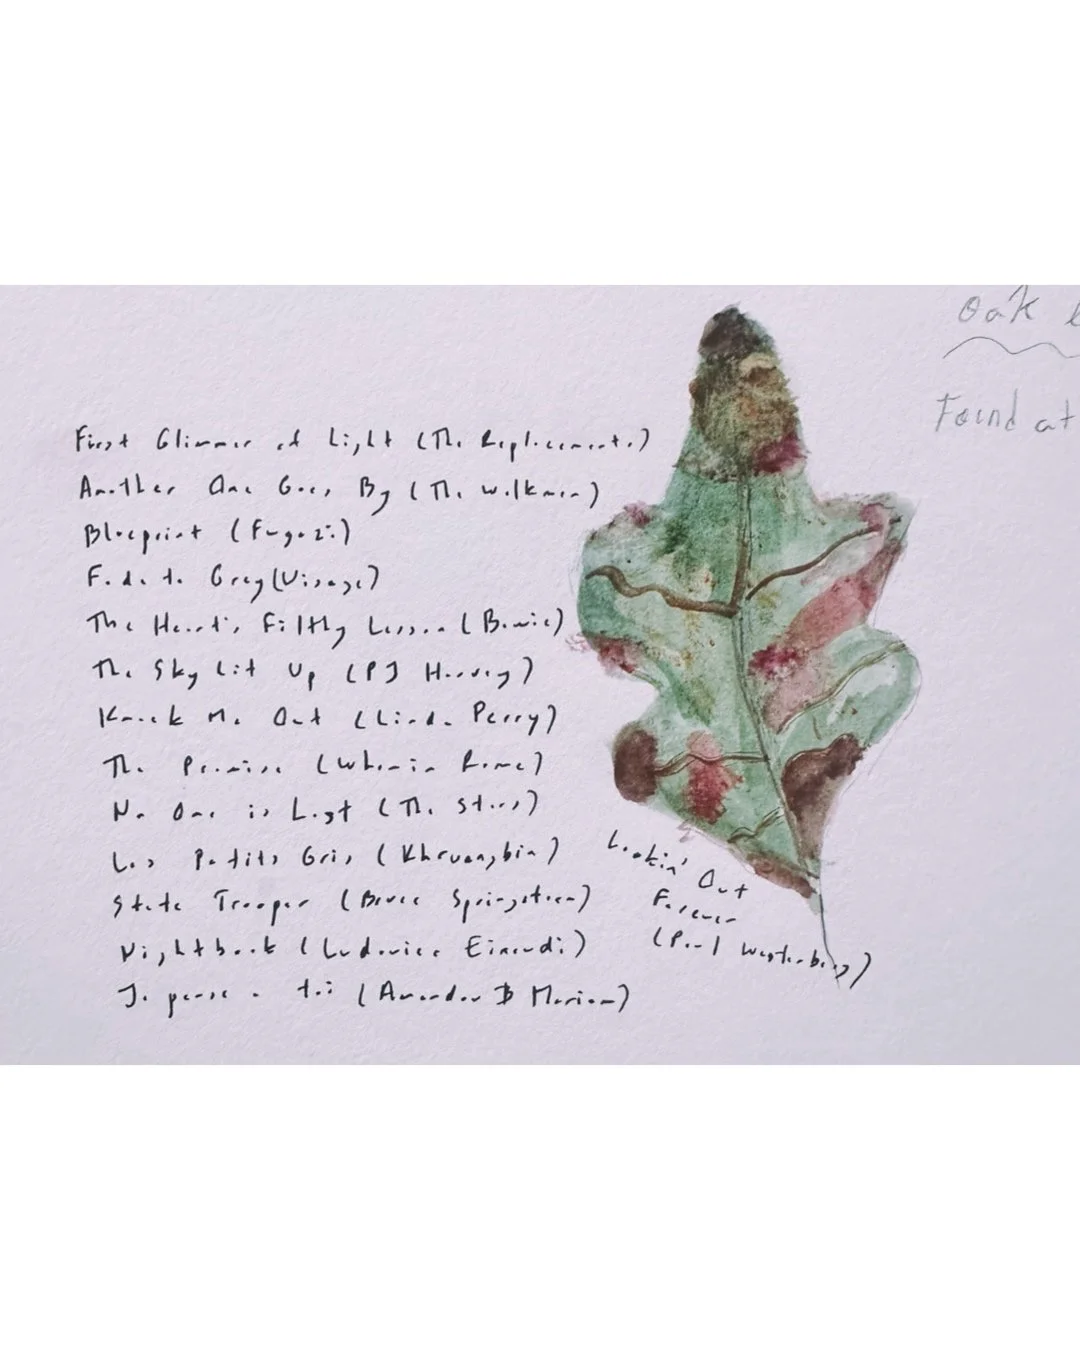 Oak
Found at
First Glimmer of Light (The Replacements)
Another One Goes By (The Walkmen)
Blueprint (Fugazi)
Fade to Grey (Visage)
The Heart's Filthy Lesson (Bowie)
The Sky Lit Up (PJ Harvey)
Knock Me Out (Linda Perry)
The Promise (When in Rome)
No One is Lost (The Stars)
Les Petits Gris (Khruangbin)
State Trooper (Bruce Springsteen)
Nightbook (Ludovico Einaudi)
Je pense a toi (Amadou & Mariam)
Lookin' Out
Forever
(Paul Westerberg)